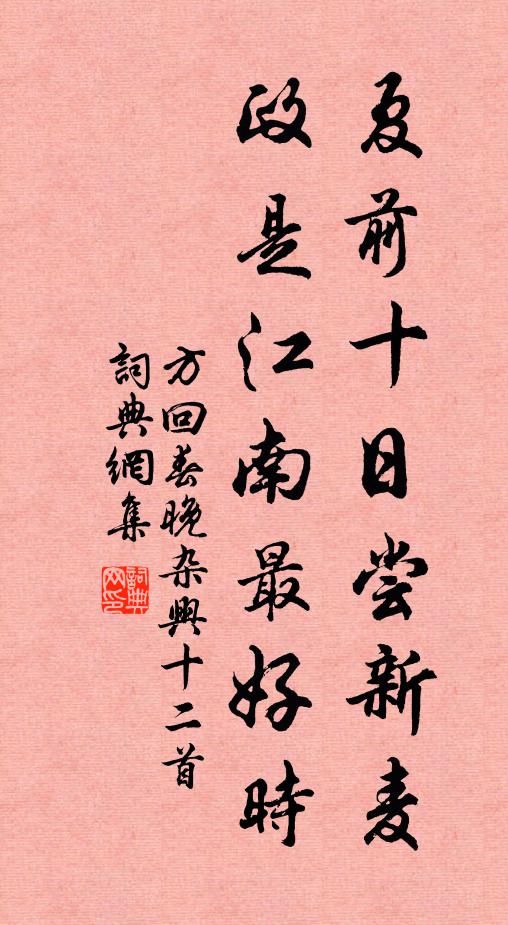 夏前十日尝新麦
政是江南最好時
方回春晚杂興十二首
詞典網集
詞典网印